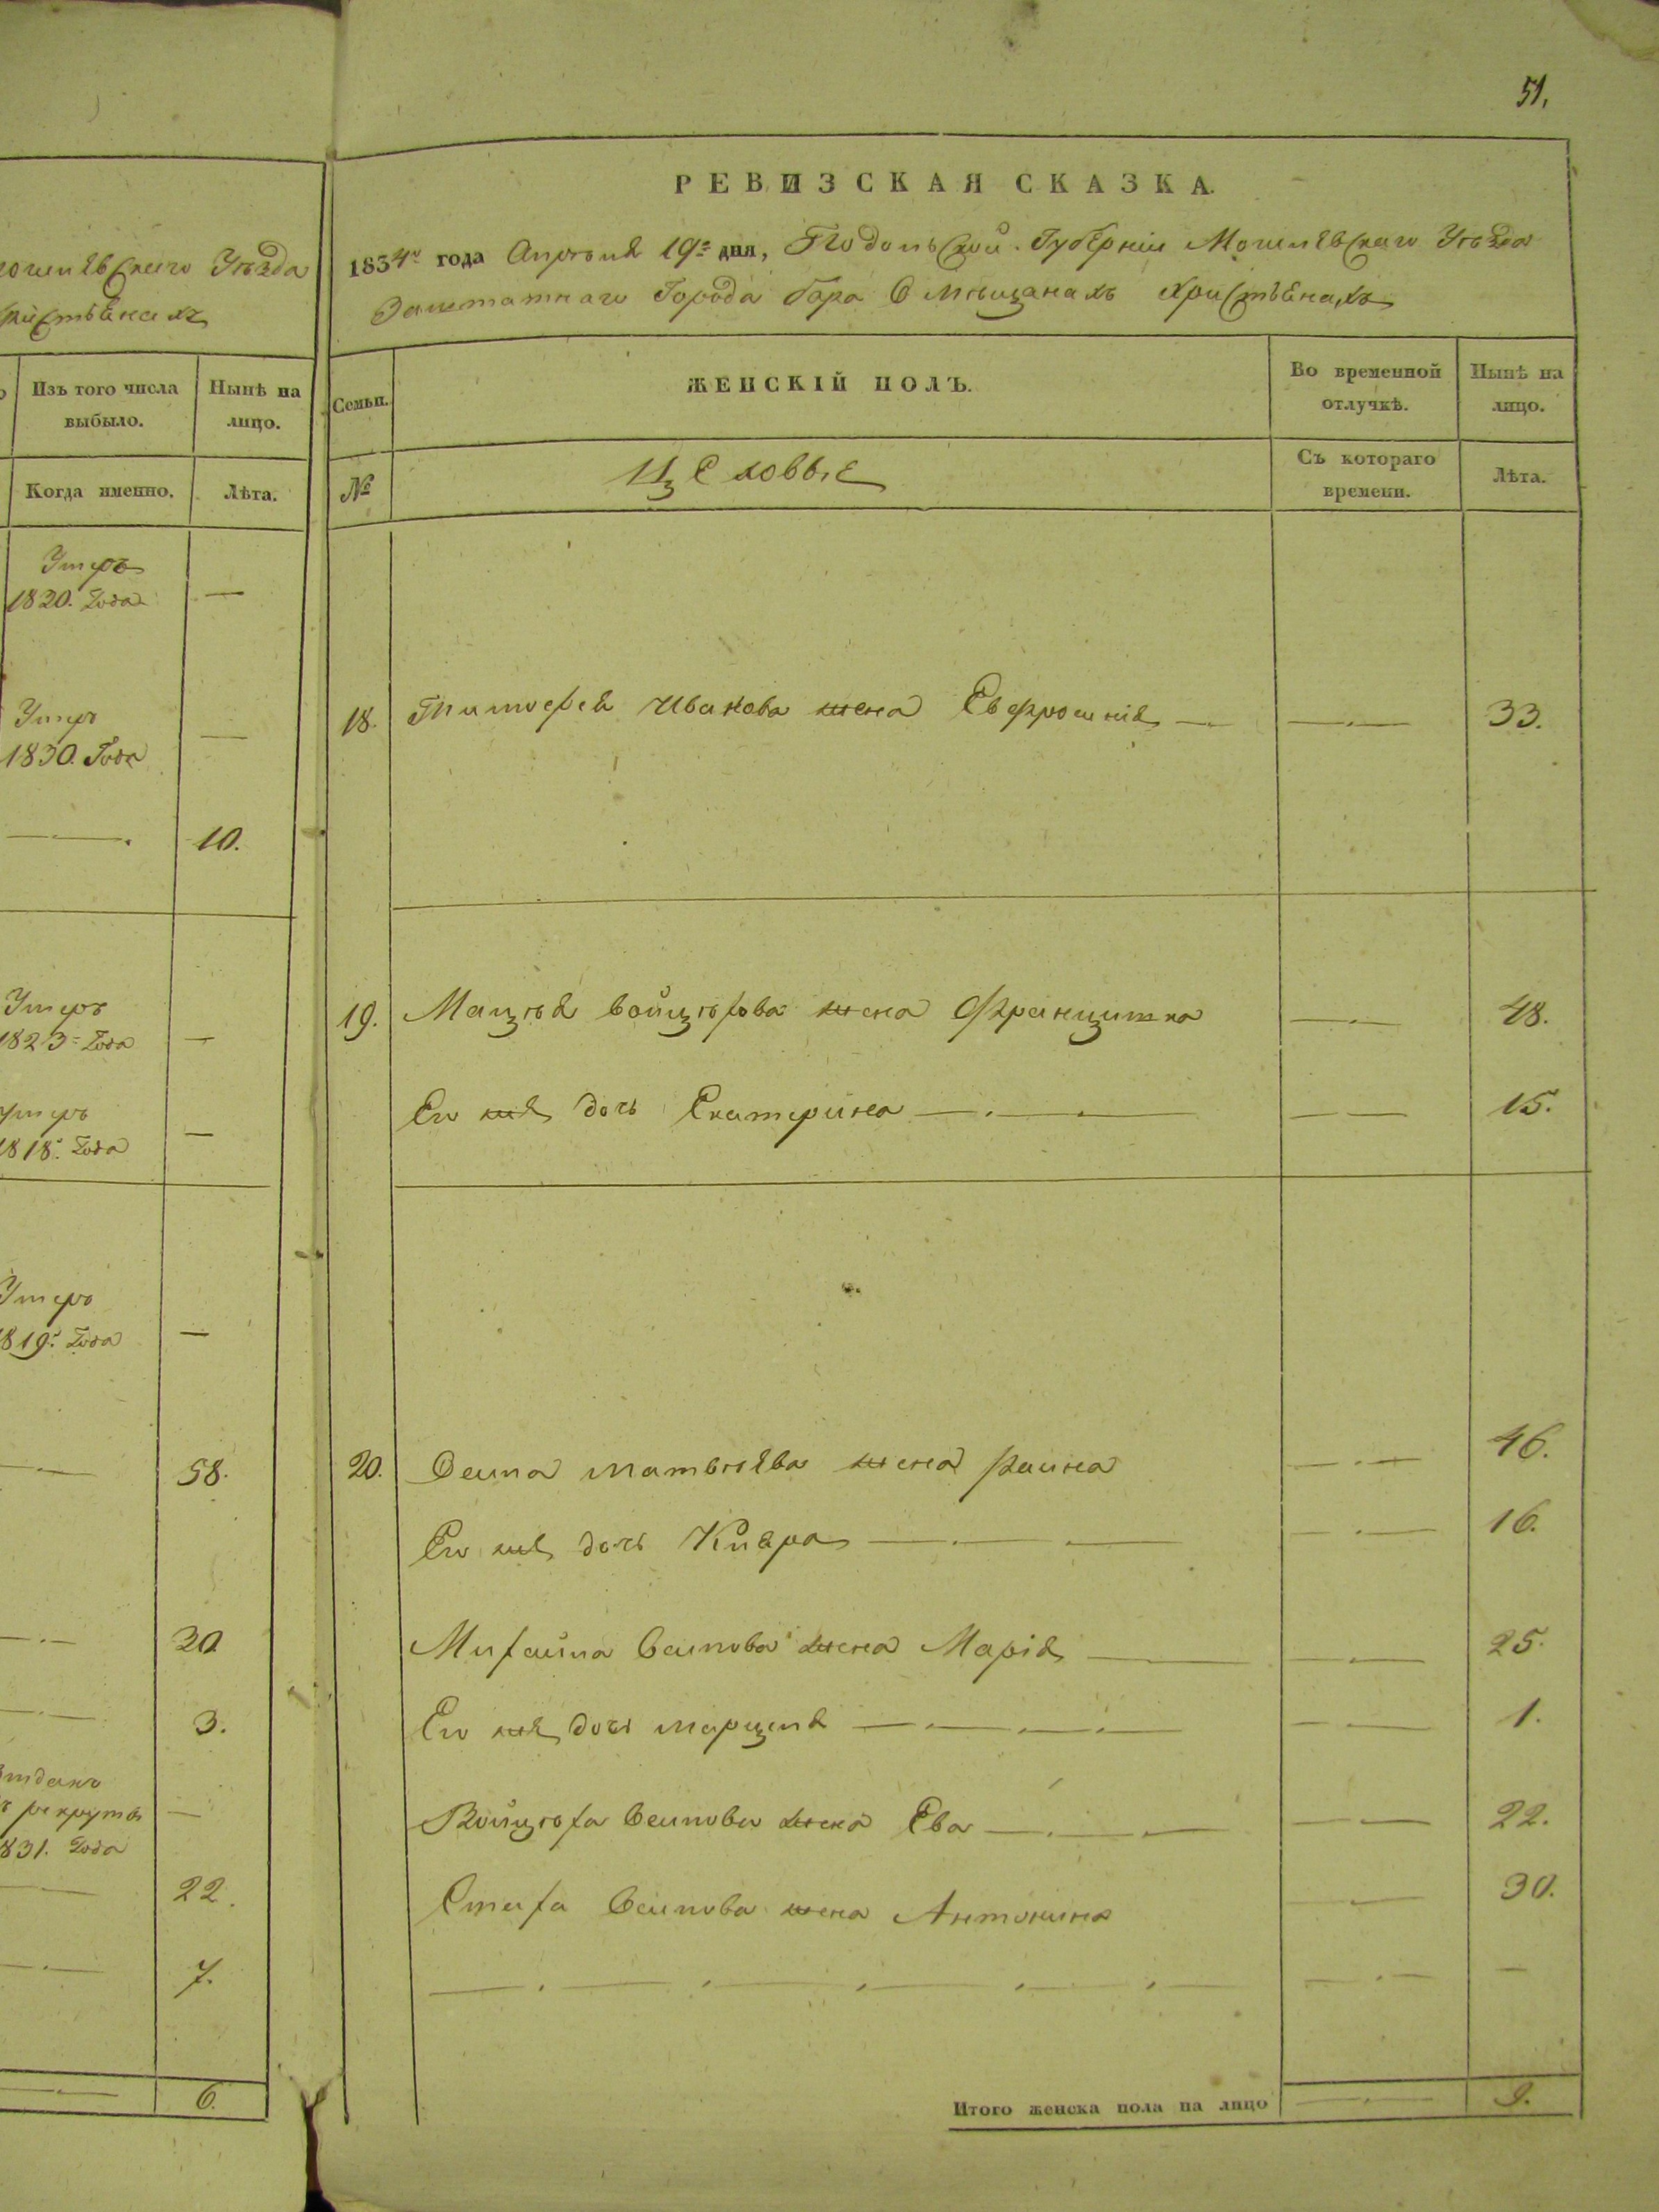 51.
могилявскаго Уѣзда
христьянахъ
Изъ того числа
выбыло.
Нынѣ на
лицо.
Когда именно.
Лѣта.
Умеръ
1820. Года —
Умеръ
1830. Года —
10.
Умеръ
1823 Года —
умеръ
1818. Года —
Умеръ
1819. Года —
58.
30
3.
Отданъ
в рекруты —
1831. Года
22.
7.
6.
РЕВИЗСКАЯ СКАЗКА.
1834 года Апрѣля 19 дня, Подольской Губерніи Могилявскаго Уѣзда
Заштатнаго Города бара О мѣщанахъ христьянахъ
Семьи.
ЖЕНСКІЙ ПОЛЪ.
Во временной
отлучкѣ.
Нынѣ на
лицо.
№
Цеховые
Съ котораго
времени.
Лѣта.
18. Тимофея Иванова жена Евфросинія — 33.
19. Мацѣя войцѣхова жена Францишка 48.
Его жъ дочь Екатерина 15.
20. Осипа матвѣява жена 46.
Его жъ дочь Кляра 16.
Михайла Осипова жена Марія 25.
Его жъ дочь марцеля 1.
Войцѣха Осипова жена Ева 22.
Стаха Осипова жена Антонина 30.
Итого женска пола на лицо 9.